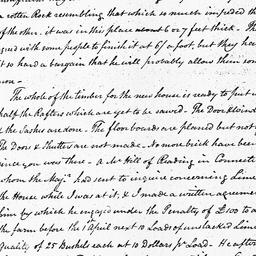 a rotten Rock assembling that which so much impeded th
of the other. it was in this place about 6 or 7 feet thick. Th
greed with some people to finish it at 6/ a foot, but they ha
it so hard a bargain that he will probably allow them som
mon
The whole of the timber for the new house is ready to put u
half the Rafters which are yet to be sawed - The Door & wind
the Sashes are done - The floor boards are planed but not
The Doors & Shutters are not made - No more brick have been
since you was there - a Mr Hill of Reading in Connecti
whom the Majr. had sent to inquire concerning Lime
the House while I was at it; & I made a written agreeme
him by which he engages under the Penalty of £100 to a
the farm before the 1 April next 10 Loads of unslacked Lime
Quality of 25 Bushels each at 10 Dollars pr Load. He after